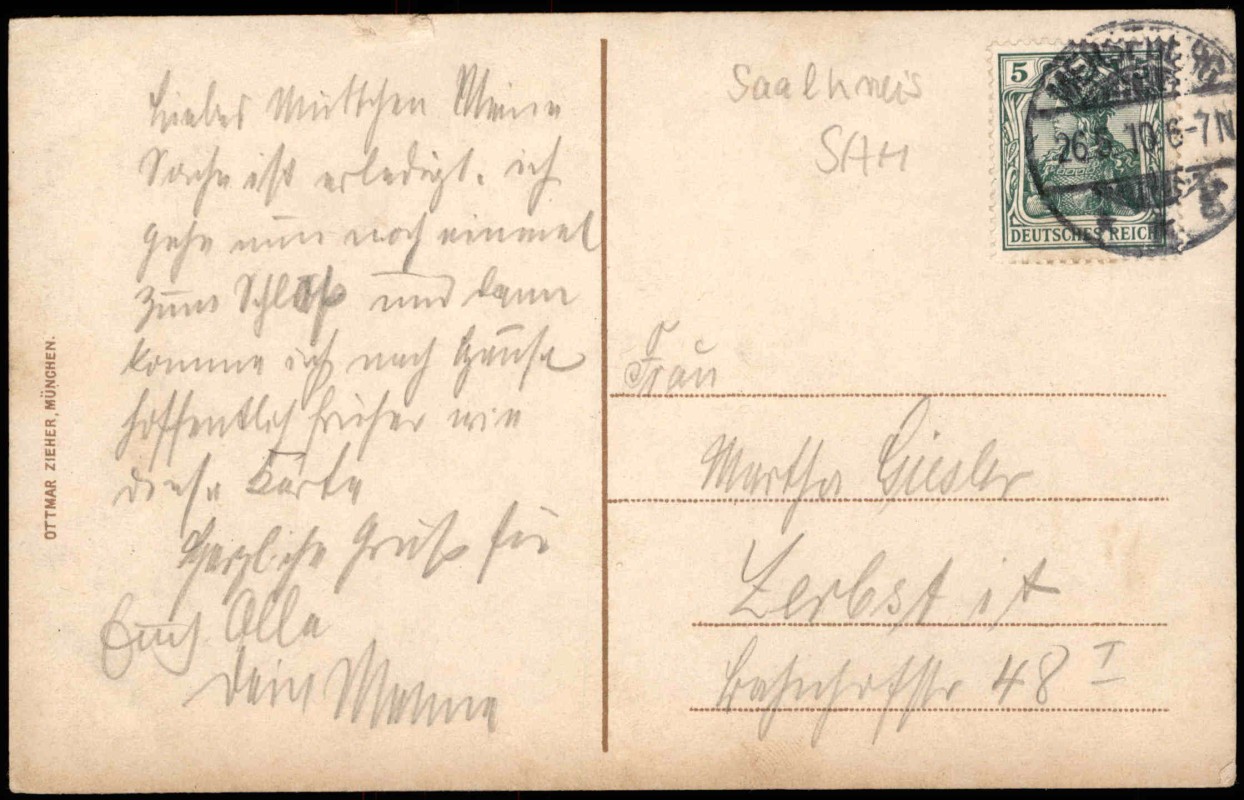 Liebes Muttchen Meine
Sache ist erledigt. ich
gehe nun noch einmal
zum Schloß und dann
komme ich nach Hause
hoffentlich früher wie
diese Karte
Herzliche Grüße für
Euch Alle
Dein Manne
OTTMAR ZIEHER, MÜNCHEN.
Saalkreis
SAH
5
DEUTSCHES REICH
26.5.10.6-7N
Frau
Martha Giesler
Zerbst i/A
Bahnhofstr 48 I